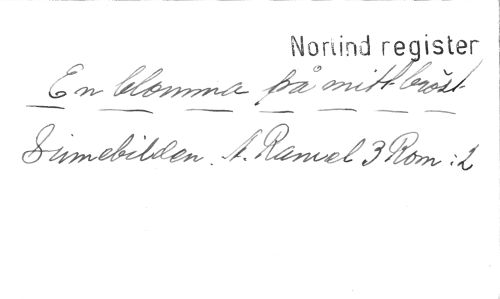 Norlind register
En blomma på mitt bröst
Sinnebilden. A. Ramel 3 Rom :2